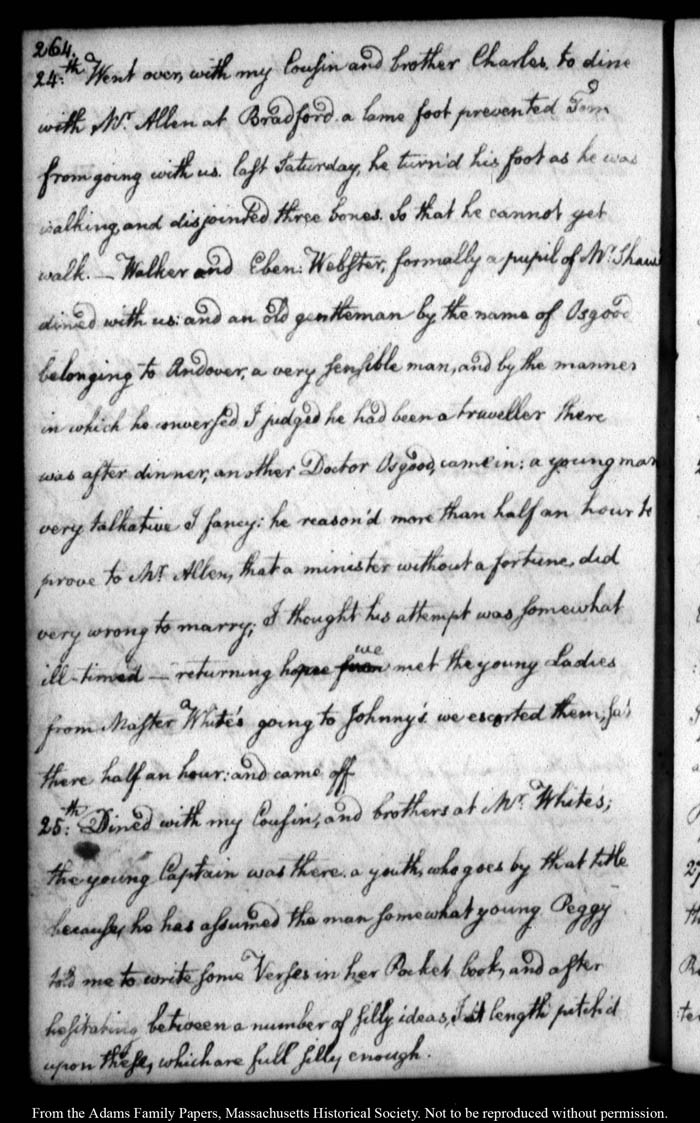 264.
24.th Went over, with my Cousin and brother Charles, to dine
with Mr. Allen at Bradford. a lame foot prevented Tom
from going with us. last Saturday, he turn'd his foot as he was
walking, and disjointed three bones. So that he cannot yet
walk. — Walker and Eben: Webster, formally a pupil of Mr. Shaw's
dined with us: and an old gentleman by the name of Osgood
belonging to Andover, a very sensible man, and by the manner
in which he conversed I judged he had been a traveller there
was after dinner, another Doctor Osgood, came in: a young man
very talkative I fancy: he reason'd more than half an hour to
prove to Mr. Allen, that a minister without a fortune, did
very wrong to marry; I thought his attempt was somewhat
ill-timed — returning we met the young Ladies
from Master White's going to Johnny's. we escorted them, sat
there half an hour: and came off
25.th Dined with my Cousin, and brothers at Mr. White's;
the young Captain was there. a youth, who goes by that title
because, he has assumed the man somewhat young. Peggy
told me to write some Verses in her Pocket book, and after
hesitating between a number of silly ideas, I at length pitch'd
upon these, which are full silly enough.
27
th
From the Adams Family Papers, Massachusetts Historical Society. Not to be reproduced without permission.